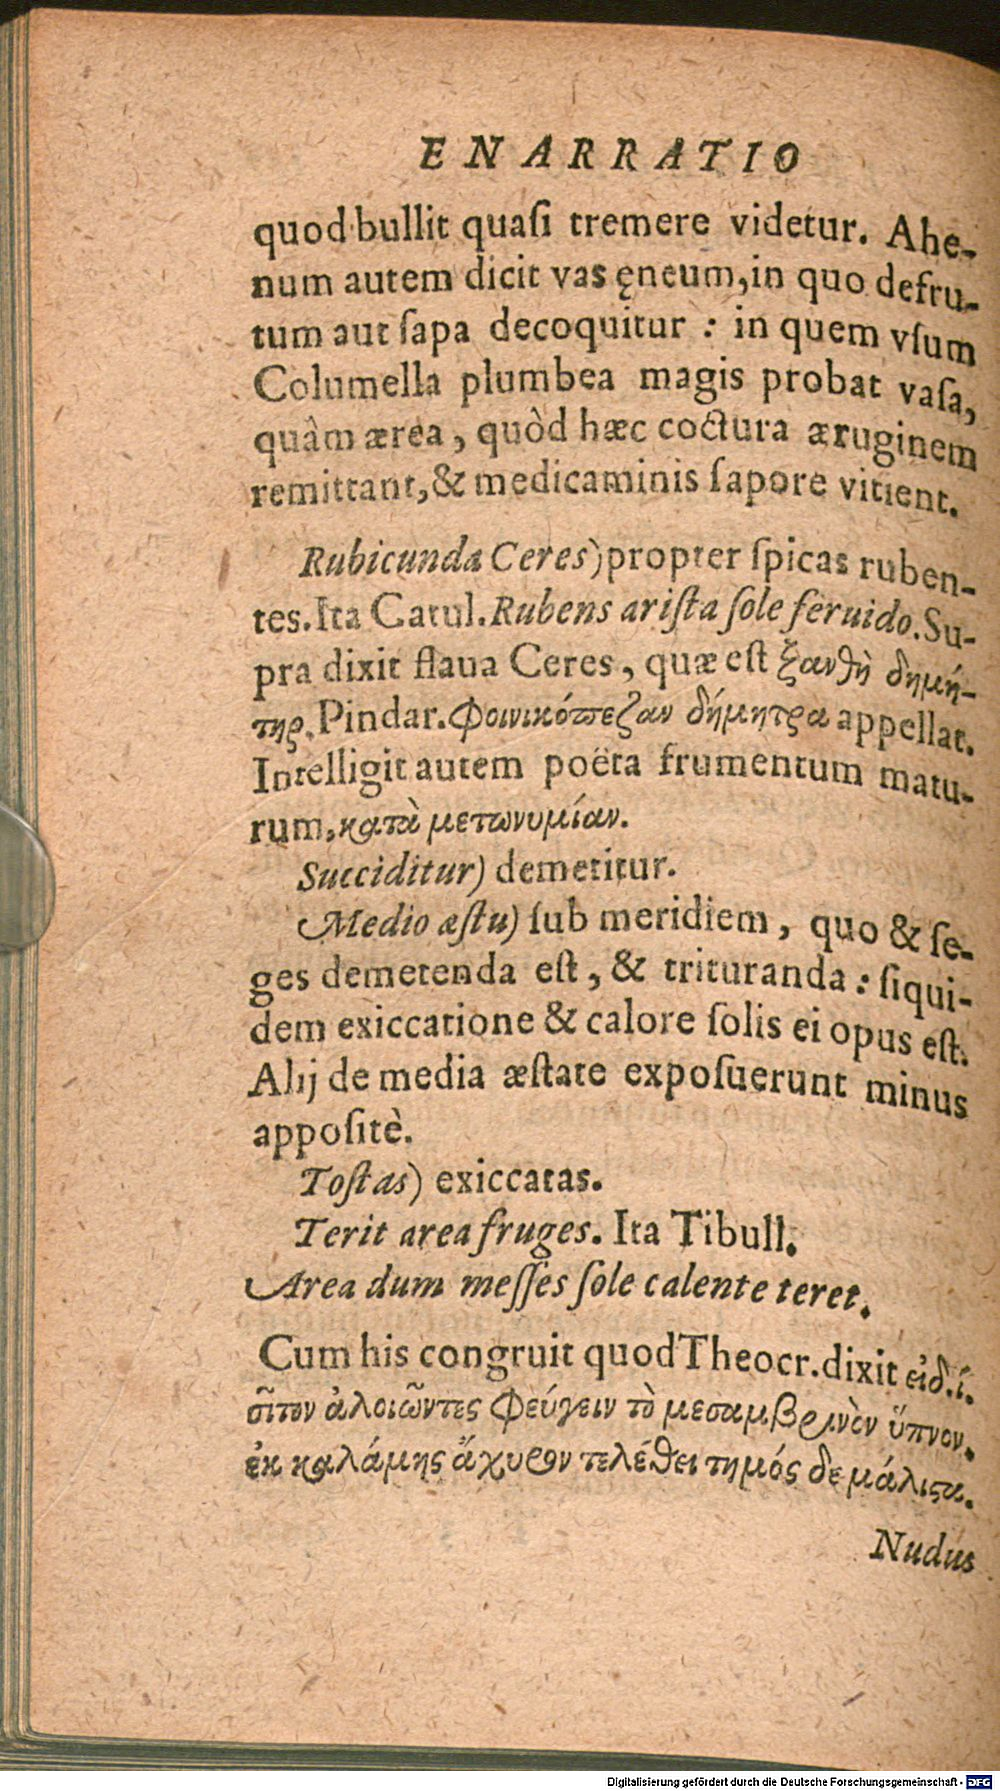 ENARRATIO
quod bullit quaſi tremere videtur. Ahe-
num autem dicit vas ęneum, in quo defru-
tum aut ſapa decoquitur : in quem vſum
Columella plumbea magis probat vaſa,
quâm ærea, quòd hæc coctura æruginem
remittant, & medicaminis ſapore vitient.
Rubicunda Ceres) propter ſpicas ruben-
tes. Ita Catul. Rubens ariſta ſole feruido. Su-
pra dixit flaua Ceres, quæ eſt ξανθὴ δημή-
τηρ. Pindar. Φοινικόπεζαν δήμητρα appellat.
Intelligit autem poëta frumentum matu-
rum, κατὰ μετωνυμίαν.
Succiditur) demetitur.
Medio æſtu) ſub meridiem, quo & ſe-
ges demetenda eſt, & trituranda : ſiqui-
dem exiccatione & calore ſolis ei opus eſt.
Alij de media æſtate expoſuerunt minus
appoſitè.
Toſtas) exiccatas.
Terit area fruges. Ita Tibull.
Area dum meſſes ſole calente teret.
Cum his congruit quod Theocr. dixit εἰδ. ί.
σῖτον ἀλοιῶντες Φεύγειν τὸ μεσαμβρινὸν ὕπνον.
ἐκ καλάμης ἄχυρον τελέθει τημός δε μάλιςα.
Nudus
Digitalisierung gefördert durch die Deutsche Forschungsgemeinschaft - DFG